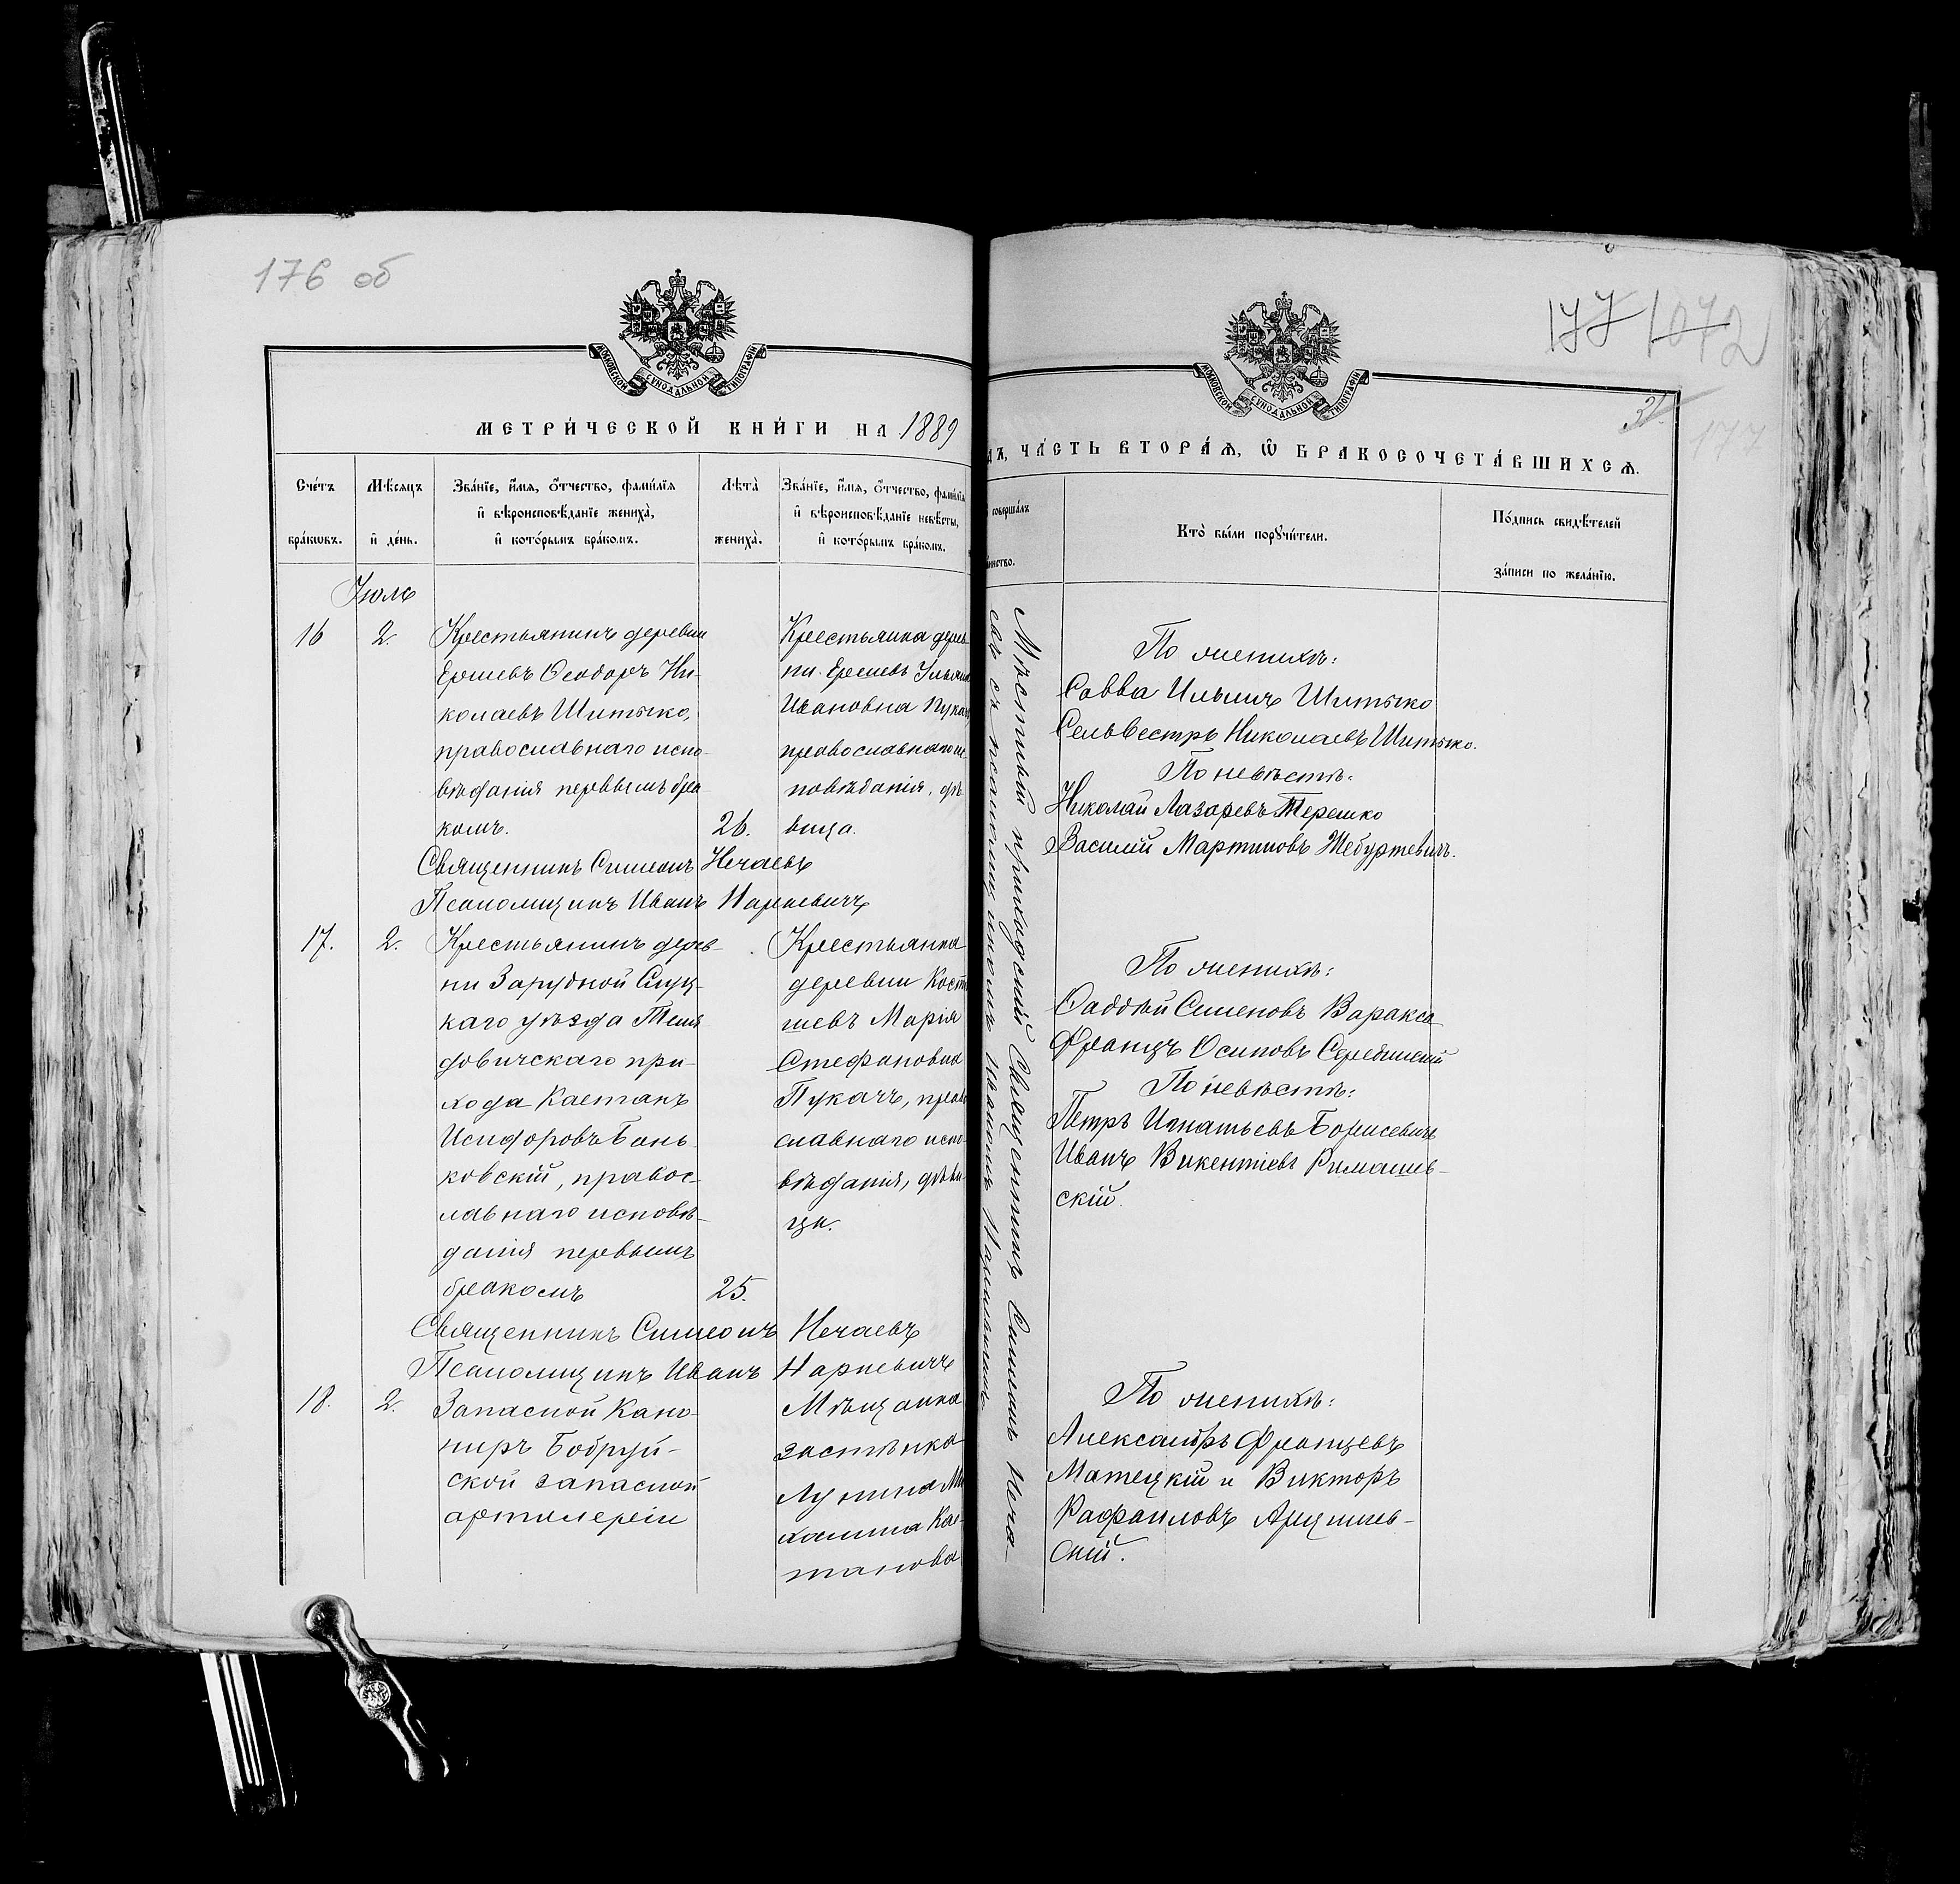 176 об
МОСКОВСКОЙ СУНОДАЛЬНОЙ ТИПОГРАФІИ
МЕТРИ́ЧЕСКОЙ КНИ́ГИ НА 1889
Сче́тъ бра́кѡвъ.
Мѣсяцъ и҆ де́нь.
Зва́нїе, и҆́мя, ѻ҆́тчество, фами́лїя
и҆ вѣроисповѣ́данїе жениха̀,
и҆ кото́рымъ бра́комъ.
Лѣта̀ жениха̀.
Зва́нїе, и҆́мя, ѻ҆́тчество, фами́лїя
и҆ вѣроисповѣ́данїе невѣ́сты,
и҆ кото́рымъ бра́комъ.
Іюль
16 2.
Крестьянинъ деревни
Ершевъ Ѳеодоръ Ни-
колаевъ Шитько,
православнаго испо-
вѣданія первымъ бра
комъ.
26.
Крестьянка дерев
ни Ершевъ
Ивановна Пукачъ
православнаго ис-
повѣданія, дѣ-
вица.
Священникъ Симеонъ Нечаевъ
Псаломщикъ Иванъ Наркевичъ
17. 2.
Крестьянинъ дерев-
ни Зарудной Слуц-
каго уѣзда
довичскаго при-
хода Каетанъ
Исидоровъ Бань
ковскій, правос-
лавнаго исповѣ-
данія первымъ
бракомъ
25.
Крестьянка
деревни
шевъ Марія
Стефановна
Пукачъ, право
славнаго испо-
вѣданія, дѣви-
ца.
Священникъ Симеонъ Нечаевъ
Псаломщикъ Иванъ Наркевичъ
18. 2.
Запасной Кано-
ниръ Бобруй-
ской запасной
артилеріи
Мѣщанка
застѣнка
Лунина Ми
халина Кае-
танова
177
1072
МОСКОВСКОЙ СУНОДАЛЬНОЙ ТИПОГРАФІИ
31
177
ДЪ, ЧА́СТЬ ВТОРА́Я, Ѡ҆ БРАКОСОЧЕТА́ВШИХСЯ.
совершáлъ
Кто̀ бы́ли порꙋчи́тели.
По́дпись свидѣ́телей
за́писи по жела́нїю.
Мѣстный приходскій Священникъ Симеонъ Неча-
евъ съ псаломщикомъ Иваномъ Наркевичемъ.
По женихѣ:
Савва Ильинъ Шитько
Сельвестръ Николаевъ Шитько.
По невѣстѣ:
Николай Лазаревъ Терешко
Василій Мартиновъ Жебуртевичъ.
По женихѣ:
Ѳаддѣй СеменовъВаракса
Францъ Осиповъ
По невѣстѣ:
Петръ Игнатьевъ Борисевичъ
Иванъ Викентіевъ Римашев-
скій.
По женихѣ:
Александръ Францевъ
Матецкій и Викторъ
Рафаиловъ
скій.